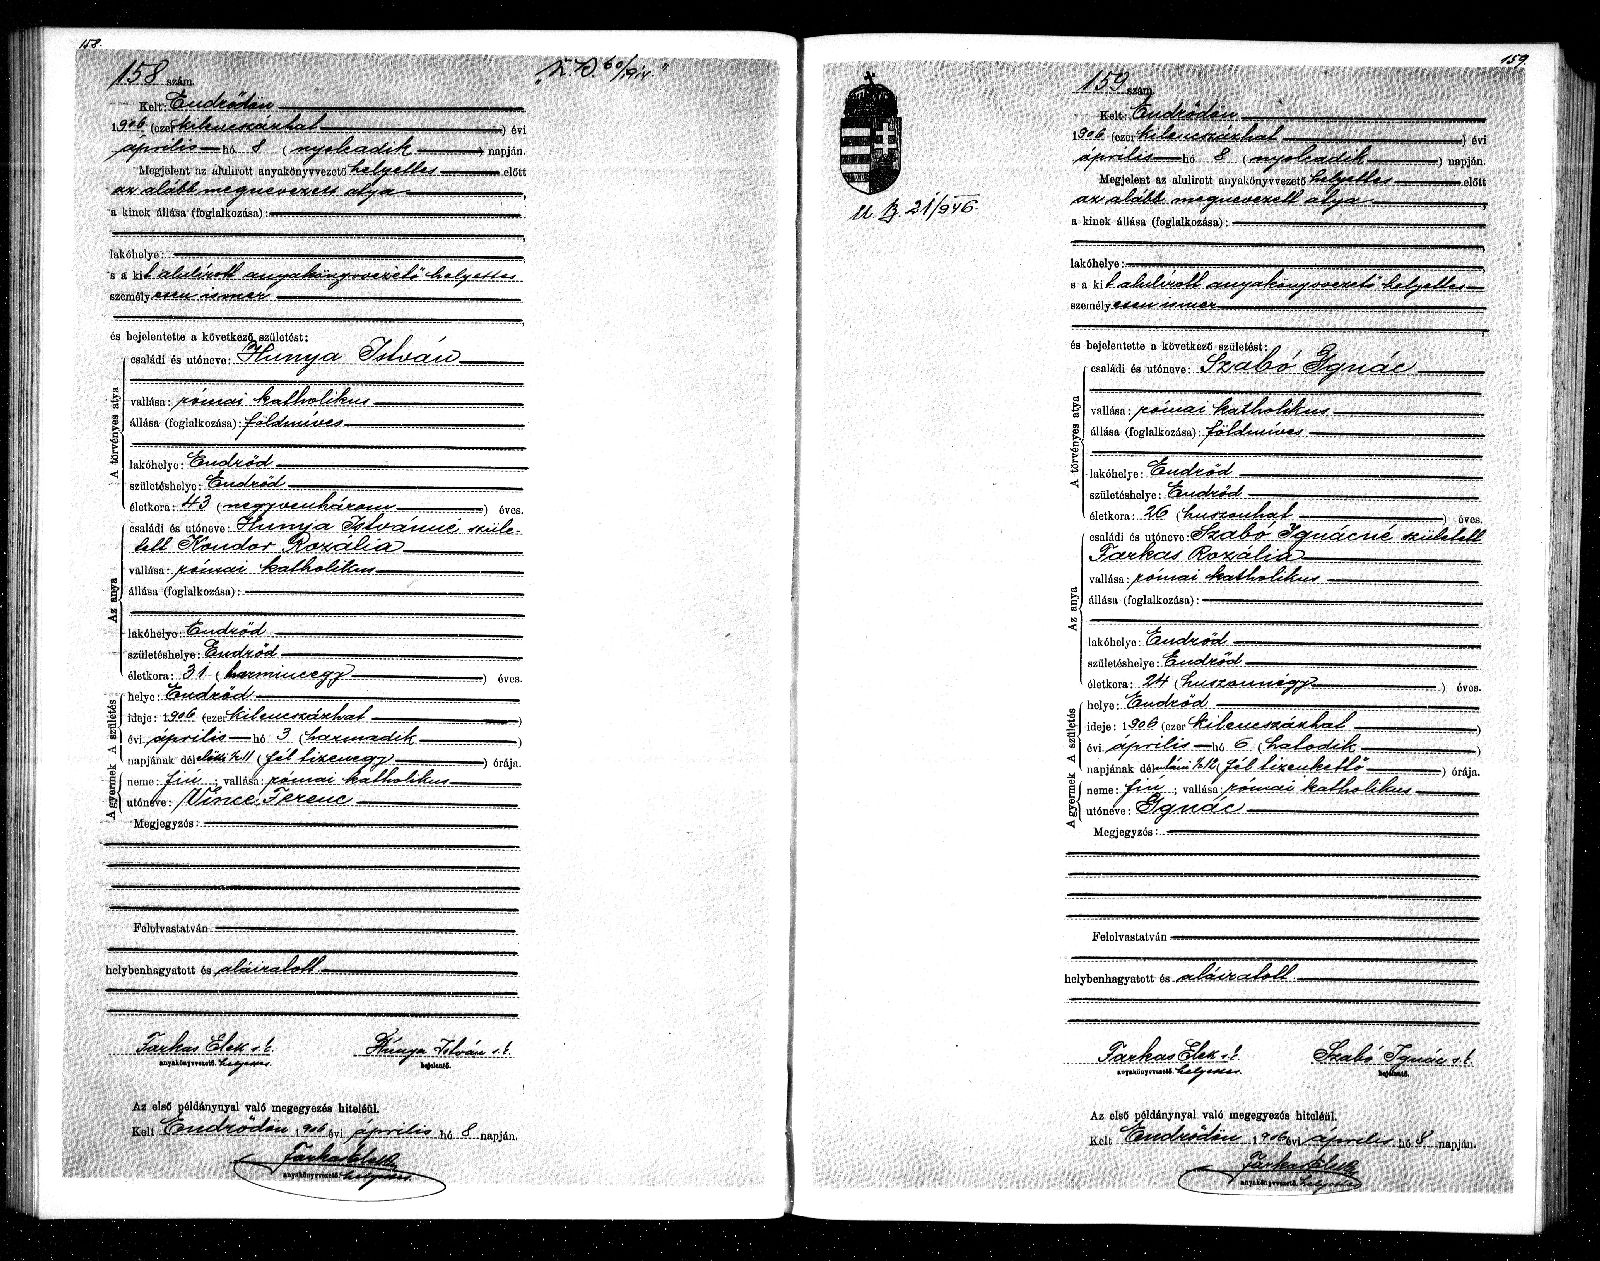 158.
158 szám.
Kelt: Endrődön
1906 (ezerkilencszázhat) évi
április hó 8 (nyolcadik) napján.
Megjelent az alulirott anyakönyvvezető helyettes előtt
az alább megnevezett atya,
a kinek állása (foglalkozása):
lakóhelye:
s a kit alulírott anyakönyvvezető helyettes
személyesen ismer
és bejelentette a következő születést:
A törvényes atya
családi és utóneve: Hunya István
vallása: római katholikus
állása (foglalkozása): földmíves
lakóhelye: Endrőd
születéshelye: Endrőd
életkora: 43 (negyvenhárom) éves.
Az anya
családi és utóneve: Hunya Istvánné szüle-
tett Kondor Rozália
vallása: római katholikus
állása (foglalkozása):
lakóhelye: Endrőd
születéshelye: Endrőd
életkora: 31 (harminczegy) éves.
A gyermek A születés
helye: Endrőd
ideje: 1906 (ezerkilencszázhat)
évi április hó 3 (harmadik)
napjának délelőtti ½11 (fél tizenegy) órája.
neme: fiú; vallása: római katholikus
utóneve: Vince Ferenc
Megjegyzés:
Felolvastatván
helybenhagyatott és aláiratott
Farkas Elek s.k. Hunya István s.k.
anyakönyvvezető. helyettes bejelentő.
Az első példánynyal való megegyezés hiteléül.
Kelt Endrődön 1906 évi április hó 8 napján.
Farkas Elek
anyakönyvvezető. helyettes
159.
U. B. 21/946.
159 szám.
Kelt: Endrődön
1906 (ezerkilencszázhat) évi
április hó 8 (nyolcadik) napján.
Megjelent az alulirott anyakönyvvezető helyettes előtt
az alább megnevezett atya
a kinek állása (foglalkozása):
lakóhelye:
s a kit alulírott anyakönyvvezető helyettes
személyesen ismer
és bejelentette a következő születést:
A törvényes atya
családi és utóneve: Szabó Ignác
vallása: római katholikus
állása (foglalkozása): földmíves
lakóhelye: Endrőd
születéshelye: Endrőd
életkora: 26 (huszonhat) éves.
Az anya
családi és utóneve: Szabó Ignácné született
Farkas Rozália
vallása: római katholikus
állása (foglalkozása):
lakóhelye: Endrőd
születéshelye: Endrőd
életkora: 24 (huszonnégy) éves.
A gyermek A születés
helye: Endrőd
ideje: 1906 (ezerkilencszázhat)
évi április hó 6 (hatodik)
napjának délutáni ½12 (fél tizenkettő) órája.
neme: fiú; vallása: római katholikus
utóneve: Ignác
Megjegyzés:
Felolvastatván
helybenhagyatott és aláiratott
Farkas Elek s.k. Szabó Ignác s.k.
anyakönyvvezető. helyettes bejelentő.
Az első példánynyal való megegyezés hiteléül.
Kelt Endrődön 1906 évi április hó 8 napján.
Farkas Elek
anyakönyvvezető. helyettes